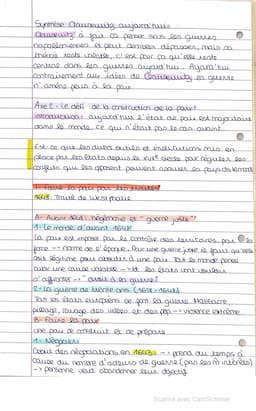 Synthèse Clausewitz aujourd'hui
Clausewitz a fait sa pensé sur les guerres
napoléoniennes et peut sembler dépassée, mais sa
théorie reste valable, c'est pour ça qu'elle reste
dans les guerres aujourd'hui. Aujourd'hui
contrairement aux idées de Clausewitz la guerre
n'amène pas à la paix.
Axe 2 - Le défi de la construction de la paix
introduction: aujourd'hui l'état de paix est majoritaire
dans le monde, ce qui n'était pas le cas avant.
Est-ce que les divers outils et institutions mis en
place par les états depuis le XVIIe siècle pour réguler les
conflits qui les opposent peuvent assurer la paix du monde
I- Faire la paix par les traités
1648: Traité de Westphalie
A- Avant 1648, hégémonie et "guerre juste"
1- Le monde d'avant 1648
La paix est imposée par le contrôle des territoires, par la
force → norme de l'époque. Pour une guerre juste il faut qu'elle
soit légitime pour aboutir à une paix. Tout le monde pense
avoir une cause valable → les états vont vouloir
s'affronter → "droit à la guerre"
2- La guerre de trente ans (1618-1648)
Tout les états européens se font la guerre. Massacre,
pillage, ravage des villes et des pop → violence extrême
B- Faire la paix
une paix se construit et se prépare
1- Négocier
Début des négociations en 1643 → prend du temps à
cause du nombre d'acteurs de guerre
→ personne veut abandonner leurs objectif
Scanné avec CamScanner